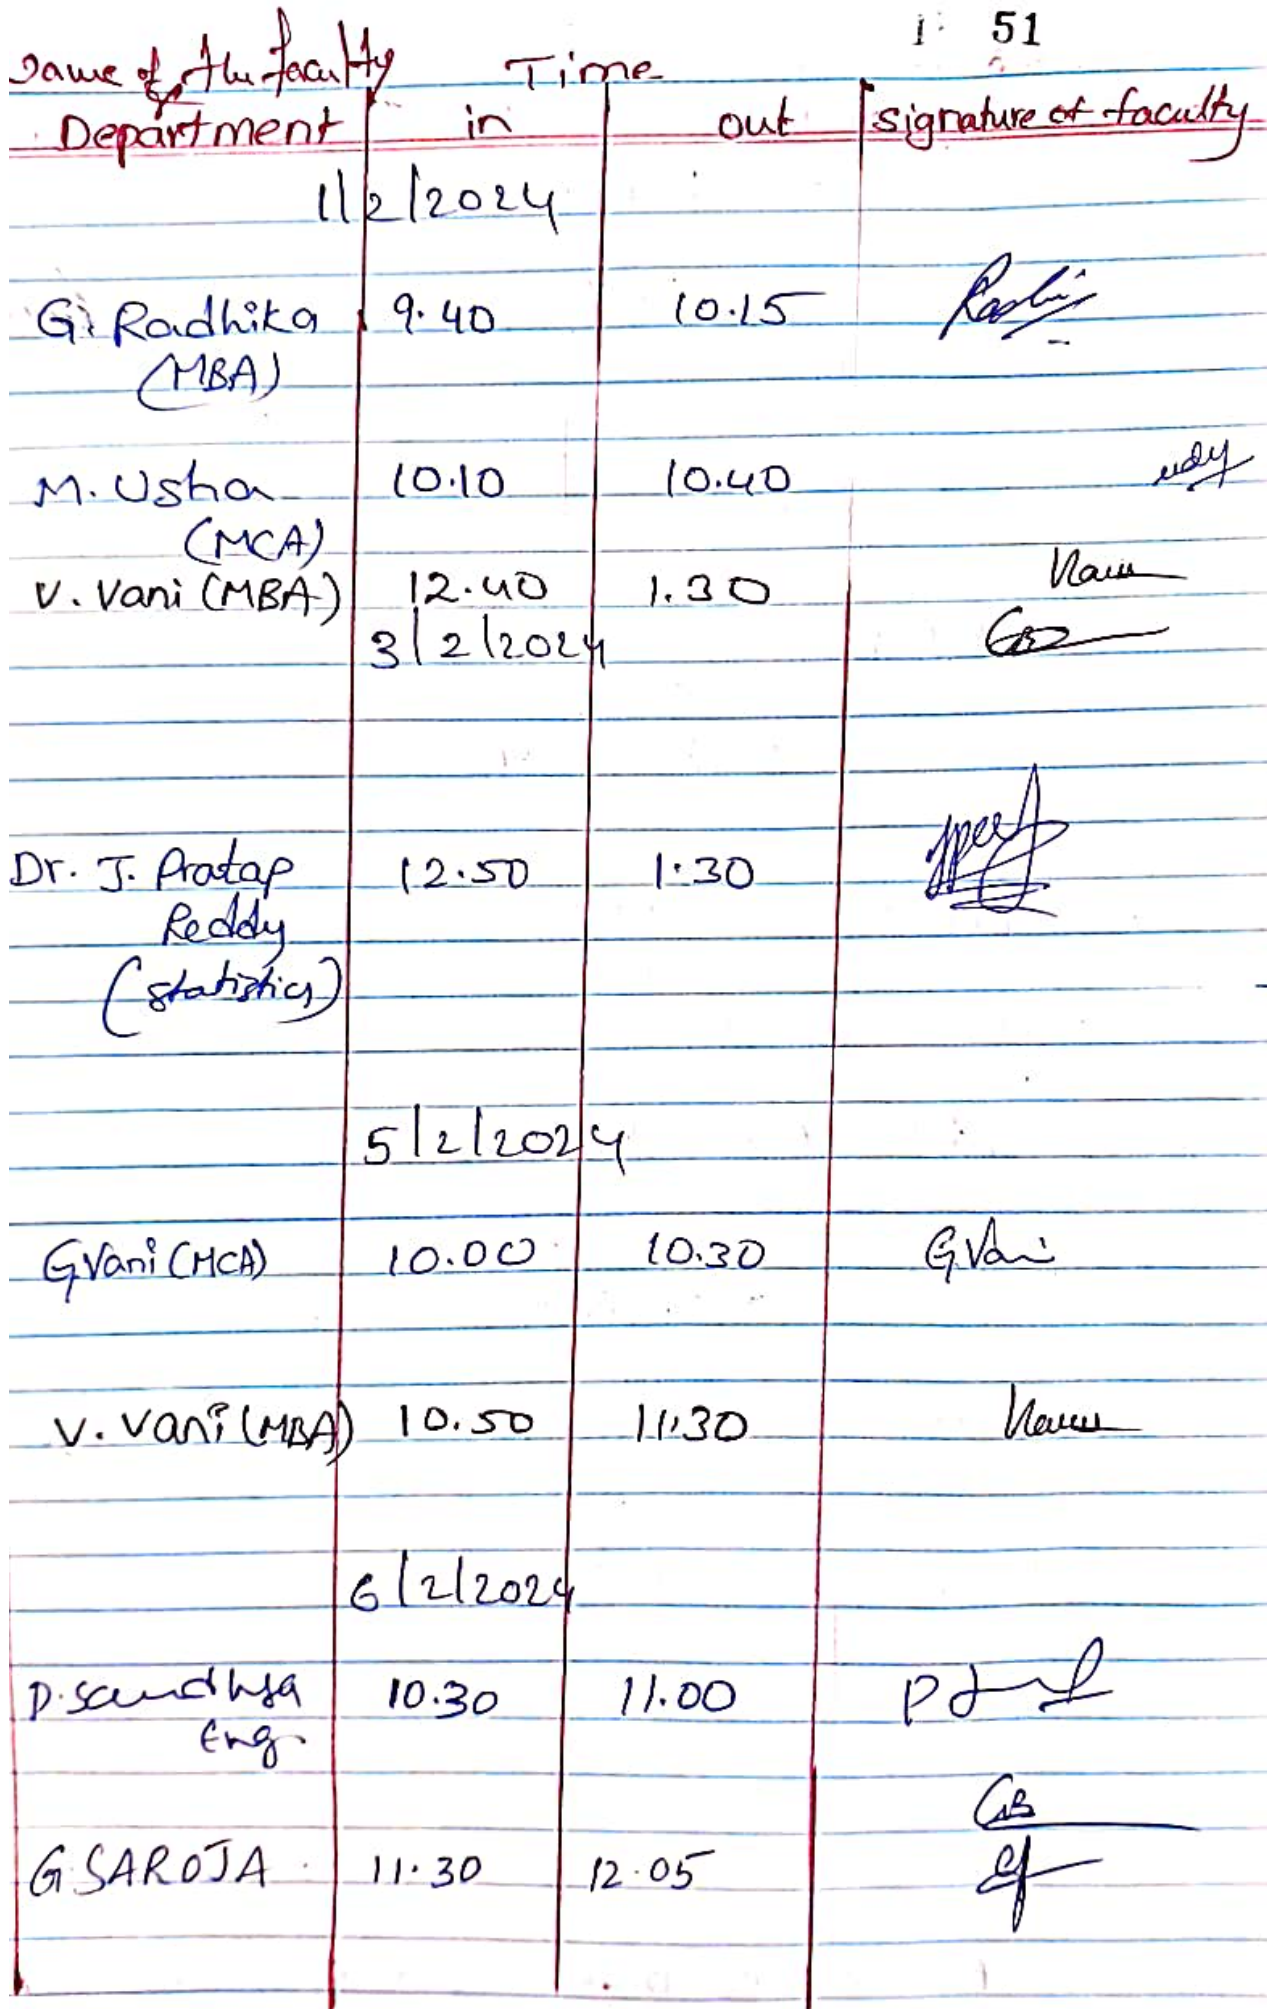 51
Name of the faculty Time
Department in out signature of faculty
1/2/2024
G. Radhika 9.40 10.15
(MBA)
M. Usha 10.10 10.40
(MCA)
V. Vani (MBA) 12.40 1.30
3/2/2024
Dr. J. Pratap 12.50 1.30
Reddy
(statistics)
5/2/2024
G Vani (MCA) 10.00 10.30 G. Vani
V. Vani (MBA) 10.50 11.30
6/2/2024
P. Sandhya 10.30 11.00
Eng.
G SAROJA 11.30 12.05